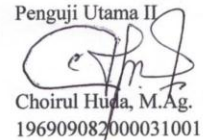 Penguji Utama II
Choirul Huda, M.Ag.
196909082000031001